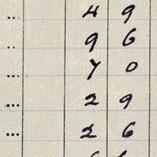 4 9
.. 9 6
... 7 0
... 2 9
... 26